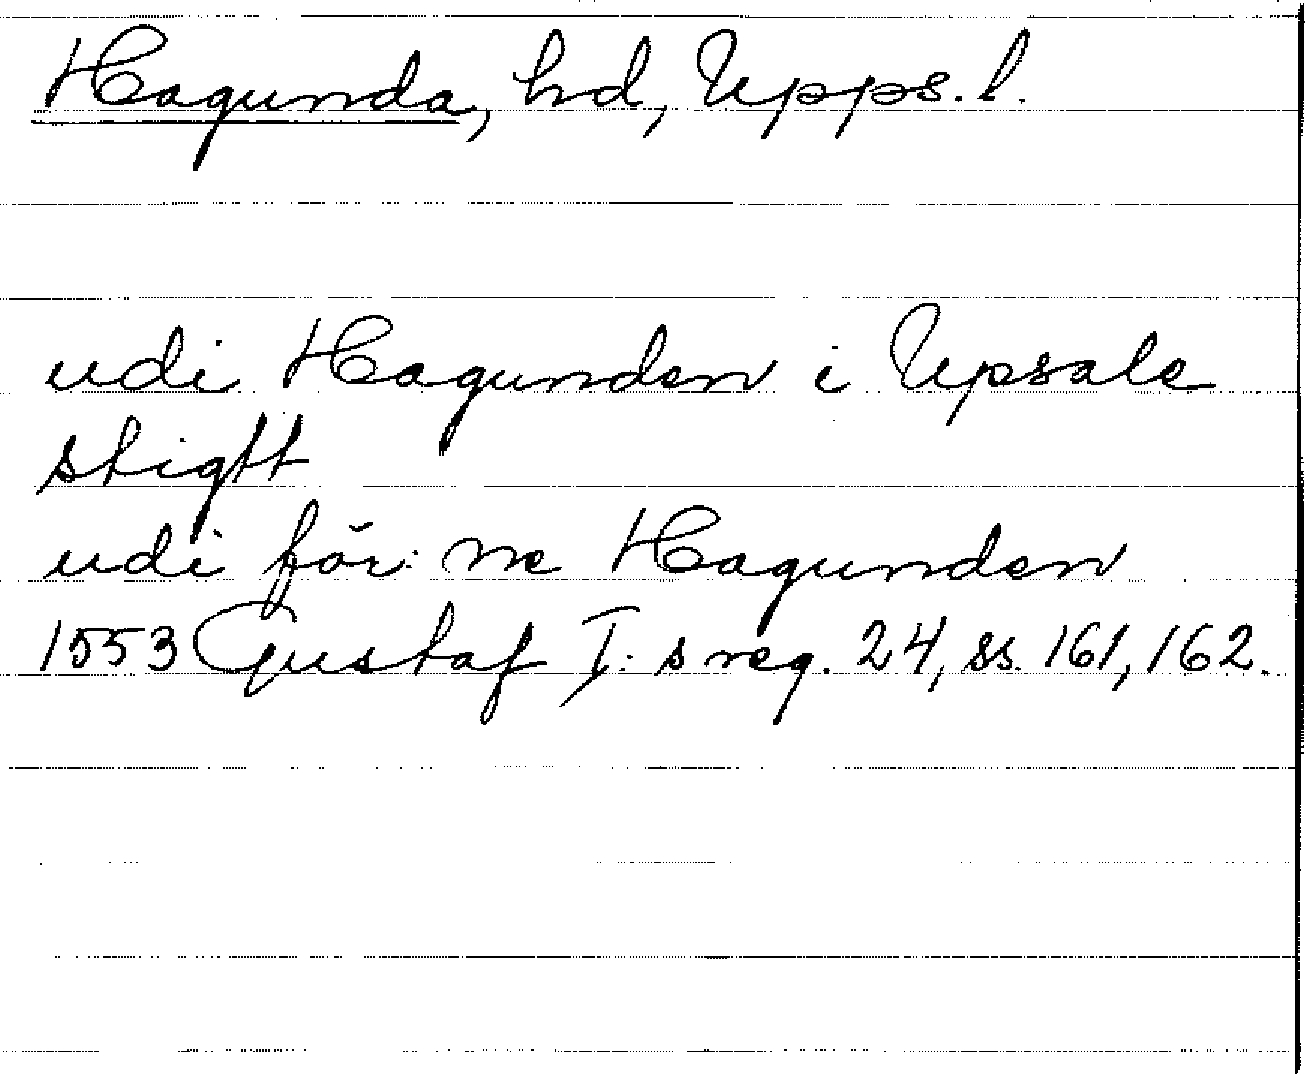 Hagunda, hd, Upps. l.
udi Hagunden i Upsale
stigtt
udi för: ne Hagunden
1553 Gustaf I: s reg. 24, ss. 161, 162.